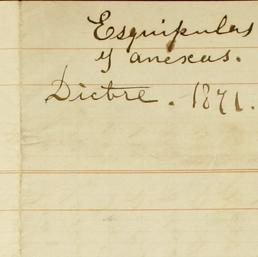 Esquipulas
y anexas.
Dicbre. 1871.